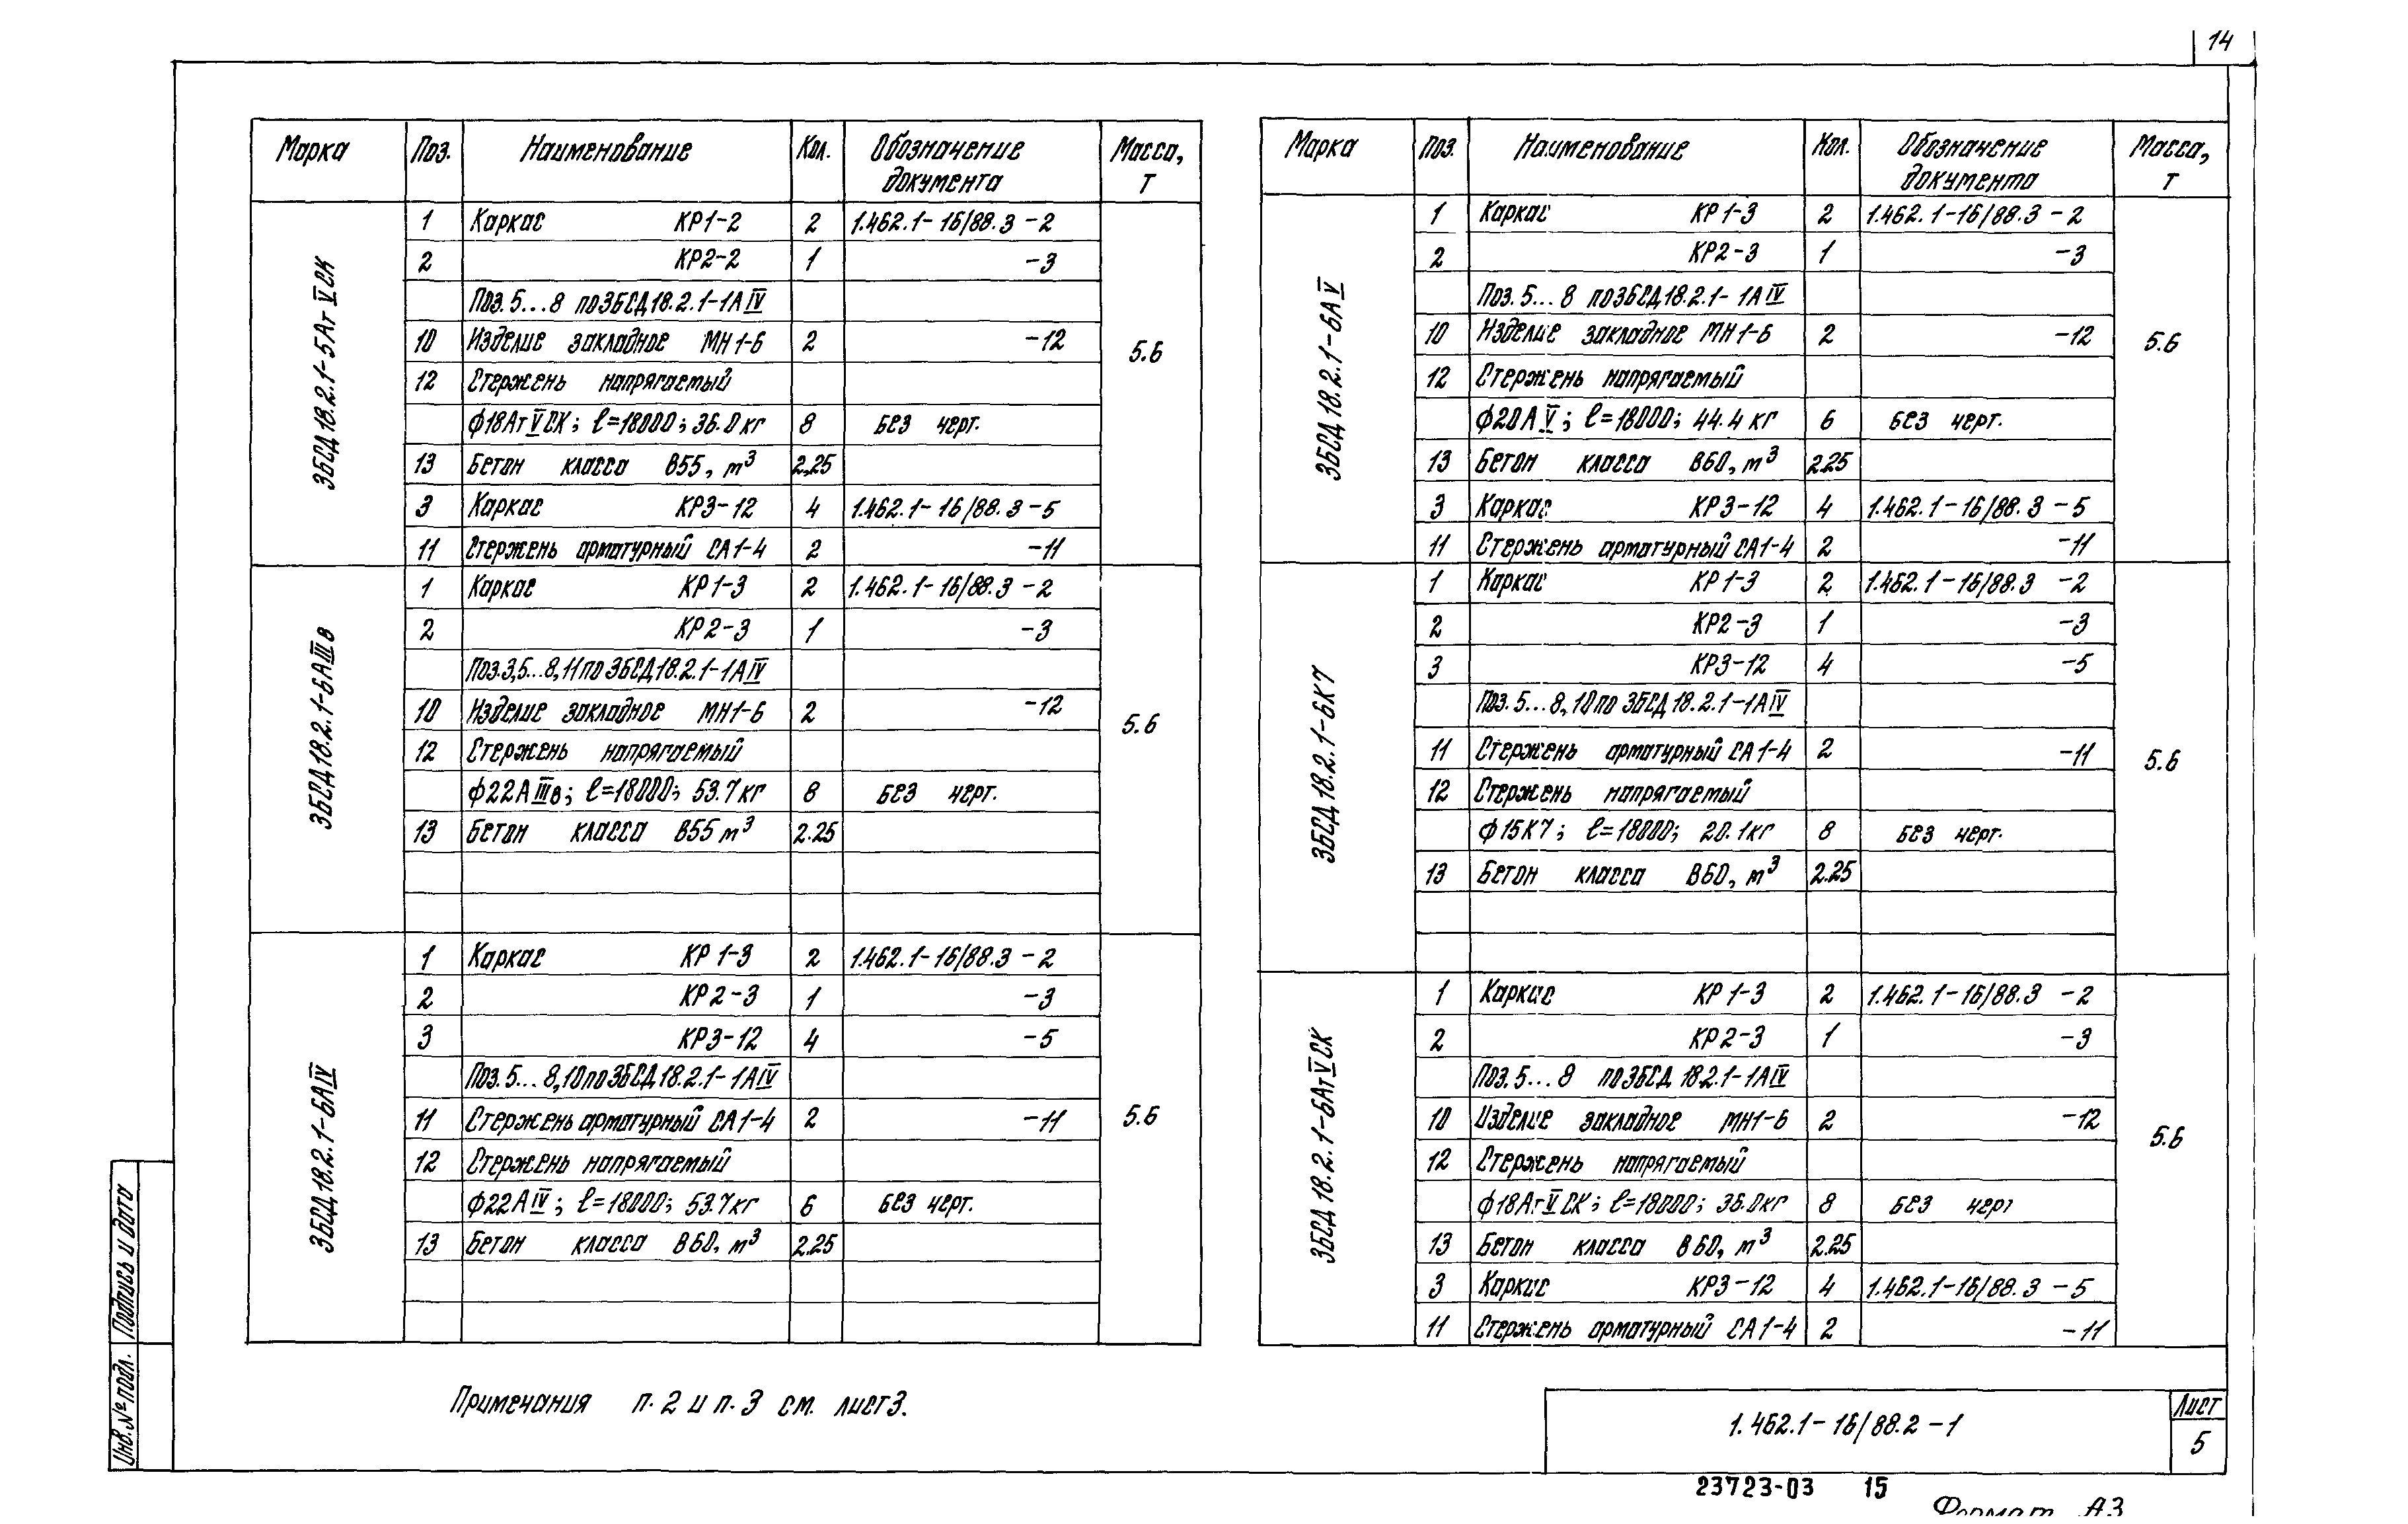 14
Марка Поз. Наименование Кол. Обозначение документа Масса, т
3БСД18.2.1-5АтVСК
1 Каркас КР1-2 2 1.462.1-16/88.3 -2
2 КР2-2 1 -3
Поз. 5...8 по 3БСД18.2.1-1АIV
10 Изделие закладное МН1-6 2 -12
5.6
12 Стержень напрягаемый
ф18АтVСК; ℓ=18000; 36.0кг 8 без черт.
13 Бетон класса В55, м³ 2.25
3 Каркас КР3-12 4 1.462.1-16/88.3-5
11 Стержень арматурный СА1-4 2 -11
3БСД18.2.1-6АIIIв
1 Каркас КР1-3 2 1.462.1-16/88.3 -2
2 КР2-3 1 -3
Поз.3,5...8,11 по 3БСД18.2.1-1АIV
10 Изделие закладное МН1-6 2 -12
5.6
12 Стержень напрягаемый
ф22АIIIв; ℓ=18000; 53.7кг 8 без черт.
13 Бетон класса В55 м³ 2.25
3БСД18.2.1-6АIV
1 Каркас КР1-3 2 1.462.1-16/88.3 -2
2 КР2-3 1 -3
3 КР3-12 4 -5
Поз.5...8,10 по 3БСД18.2.1-1АIV
11 Стержень арматурный СА1-4 2 -11
5.6
12 Стержень напрягаемый
ф22АIV; ℓ=18000; 53.7кг 6 без черт.
13 Бетон класса В60, м³ 2.25
Марка Поз. Наименование Кол. Обозначение документа Масса, т
3БСД18.2.1-6АV
1 Каркас КР1-3 2 1.462.1-16/88.3 -2
2 КР2-3 1 -3
Поз. 5...8 по 3БСД18.2.1-1АIV
10 Изделие закладное МН1-6 2 -12
5.6
12 Стержень напрягаемый
ф20АV; ℓ=18000; 44.4кг 6 без черт.
13 Бетон класса В60, м³ 2.25
3 Каркас КР3-12 4 1.462.1-16/88.3 -5
11 Стержень арматурный СА1-4 2 -11
3БСД18.2.1-6К7
1 Каркас КР1-3 2 1.462.1-16/88.3 -2
2 КР2-3 1 -3
3 КР3-12 4 -5
Поз. 5...8,10 по 3БСД18.2.1-1АIV
11 Стержень арматурный СА1-4 2 -11
5.6
12 Стержень напрягаемый
ф15К7; ℓ=18000; 20.1кг 8 без черт.
13 Бетон класса В60, м³ 2.25
3БСД18.2.1-6АтVСК
1 Каркас КР1-3 2 1.462.1-16/88.3 -2
2 КР2-3 1 -3
Поз. 5...8 по 3БСД18.2.1-1АIV
10 Изделие закладное МН1-6 2 -12
5.6
12 Стержень напрягаемый
ф18АтVСК; ℓ=18000; 36.0кг 8 без черт
13 Бетон класса В60, м³ 2.25
3 Каркас КР3-12 4 1.462.1-16/88.3 -5
11 Стержень арматурный СА1-4 2 -11
Примечания п.2 и п.3 см. лист3.
Подпись и дата
Инв.№подл.
1.462.1-16/88.2-1
Лист
5
23723-03 15
Формат А3